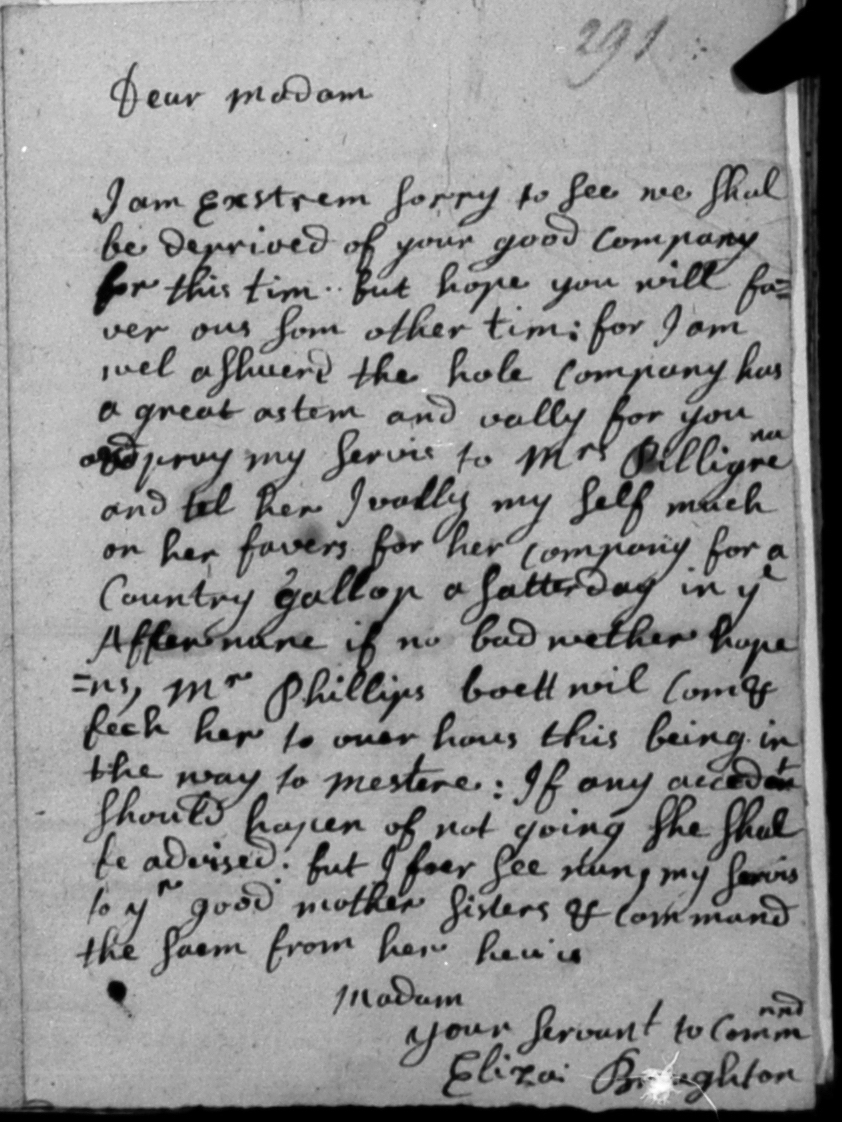 291
Dear Madam
I am Exstrem sorry to see we shal
be deprived of your good Company
for this tim.. but hope you will fa=
ver ous som other tim: for I am
wel ashuerd the hole Company has
a great astem and vally for you
and pray my servis to Mrs Killigre
and tel her I vally my self much
on her favers for her company for a
Country gallop a Satterday in ye
Afternune if no bad wether hope
=ns, Mr Phillips boett wil Com &
fech her to ouer hous this being in
the way to mestere: If any accedent
should hapen of not going she shal
be advised. but I foer see nun, my servis
to yr good mother sisters & Command
the saem from her
Madam
your servant to Command
Eliza: Broughton